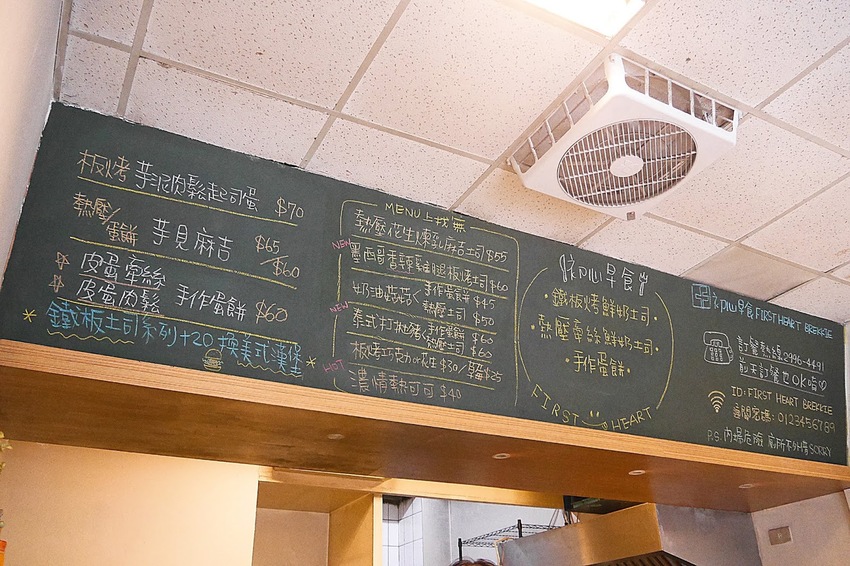 板烤 芋泥肉鬆起司蛋 $70
熱壓/蛋餅 芋見麻吉 $65/$60
皮蛋牽絲
皮蛋肉鬆 手作蛋餅 $60
鐵板土司系列+20 換美式漢堡
MENU上找無
熱壓花生煉乳麻吉土司 $55
NEW 墨西哥香辣雞腿板烤土司 $60
奶油菇菇 手作蛋餅 $45
熱壓土司 $50
NEW 泰式打拋豬 手作蛋餅 $60
熱壓土司 $60
板烤巧克力or花生 $30/ $25
HOT 濃情熱可可 $40
初心早食
·鐵板烤鮮奶土司·
·熱壓牽絲鮮奶土司·
·手作蛋餅·
FIRST HEART
初心早食 FIRST HEART BREKKIE
訂餐熱線 2996-4491
前天訂餐也OK唷
ID: FIRST HEART BREKKIE
通關密碼: 0123456789
P.S. 內場危險 廁所不外借 SORRY